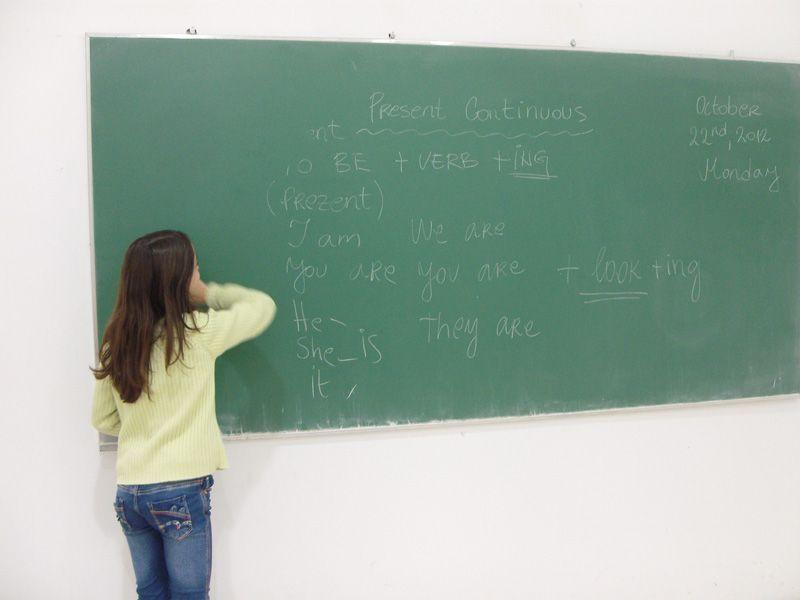 Present Continuous
nt
BE + VERB + ING
(Prezent)
I am We are
You are You are + look + ing
He
She is They are
it
October
22nd, 2012
Monday